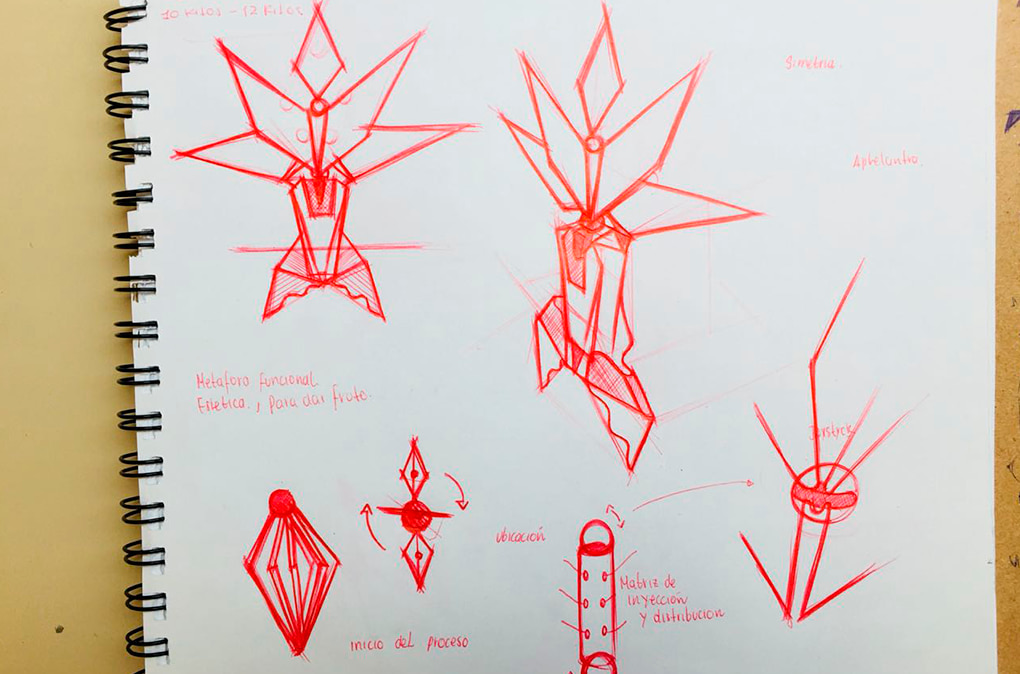 10 Kilos - 12 Kilos
Simetria.
Metaforo funcional
Estetica. , Para dar fruto.
Joystick
ubicación
Matriz de
inyección
y distribucion
inicio del proceso